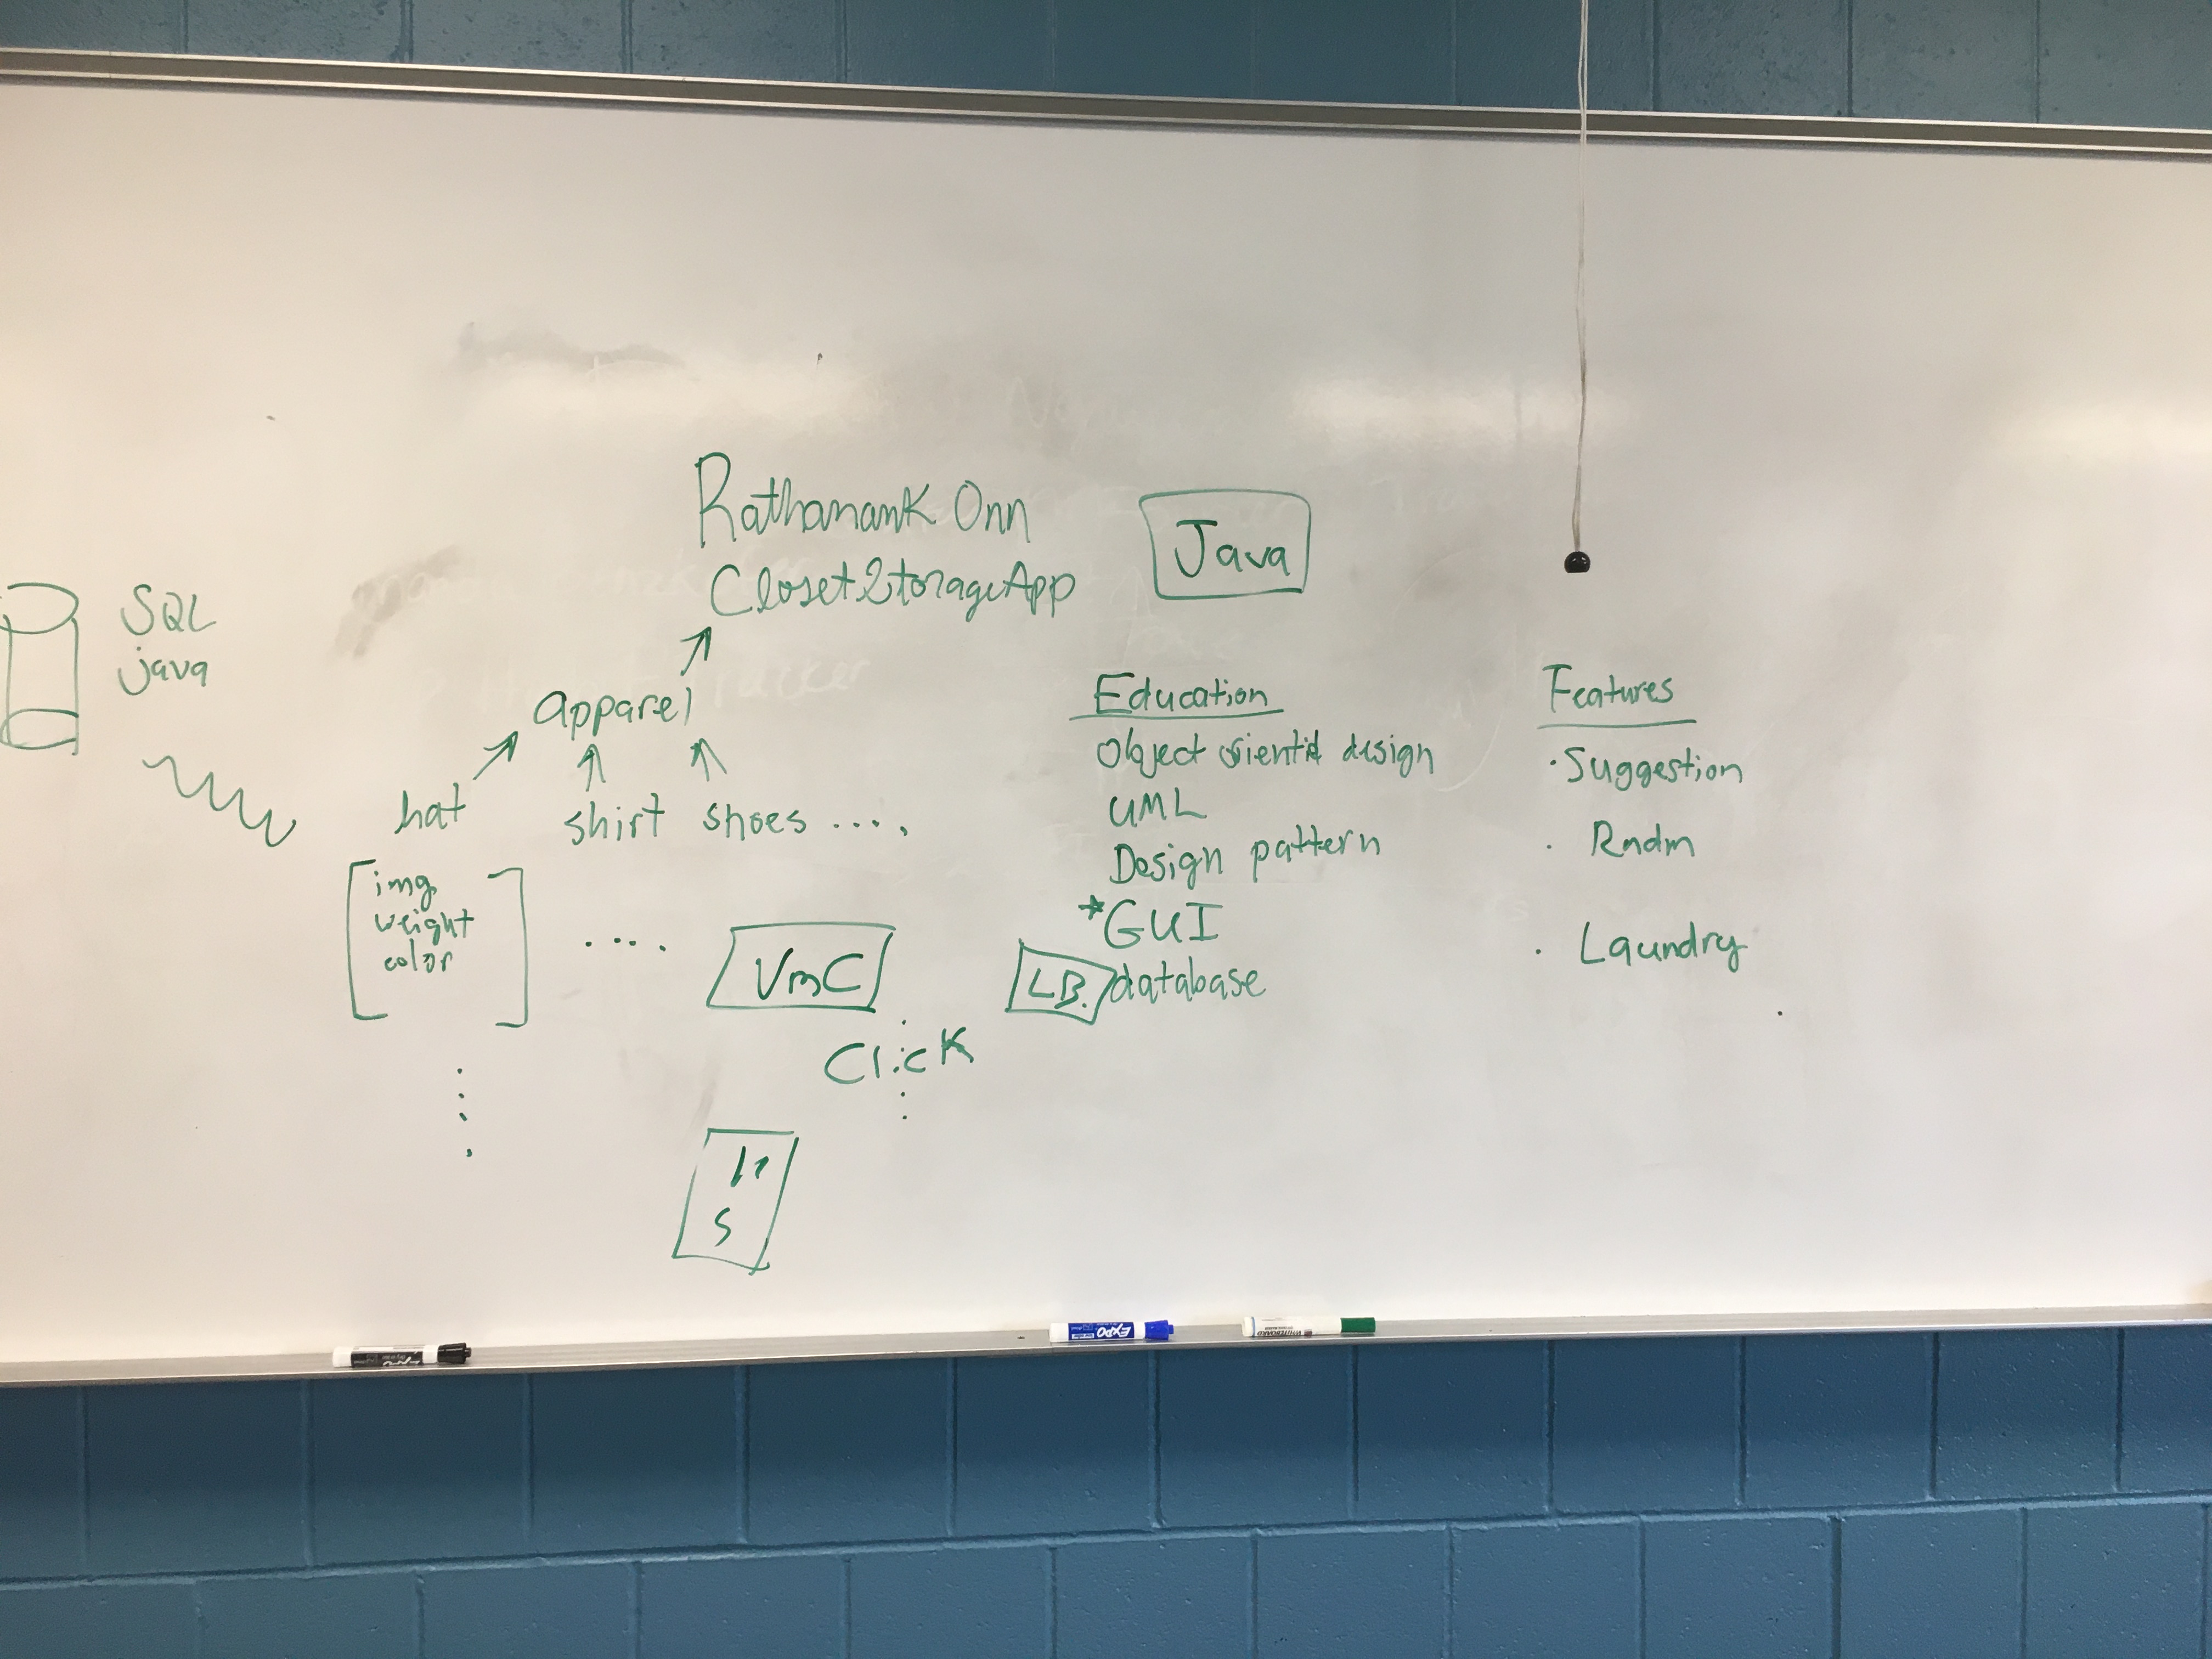 Rathanank Onn
Closet StorageApp
Java
SQL
java
apparel
hat
shirt
shoes ....
img
weight
color
....
VmC
Click
S
Education
Object oriented design
UML
Design pattern
*GUI
LB.
database
Features
· Suggestion
· Rndm
· Laundry
EXPO